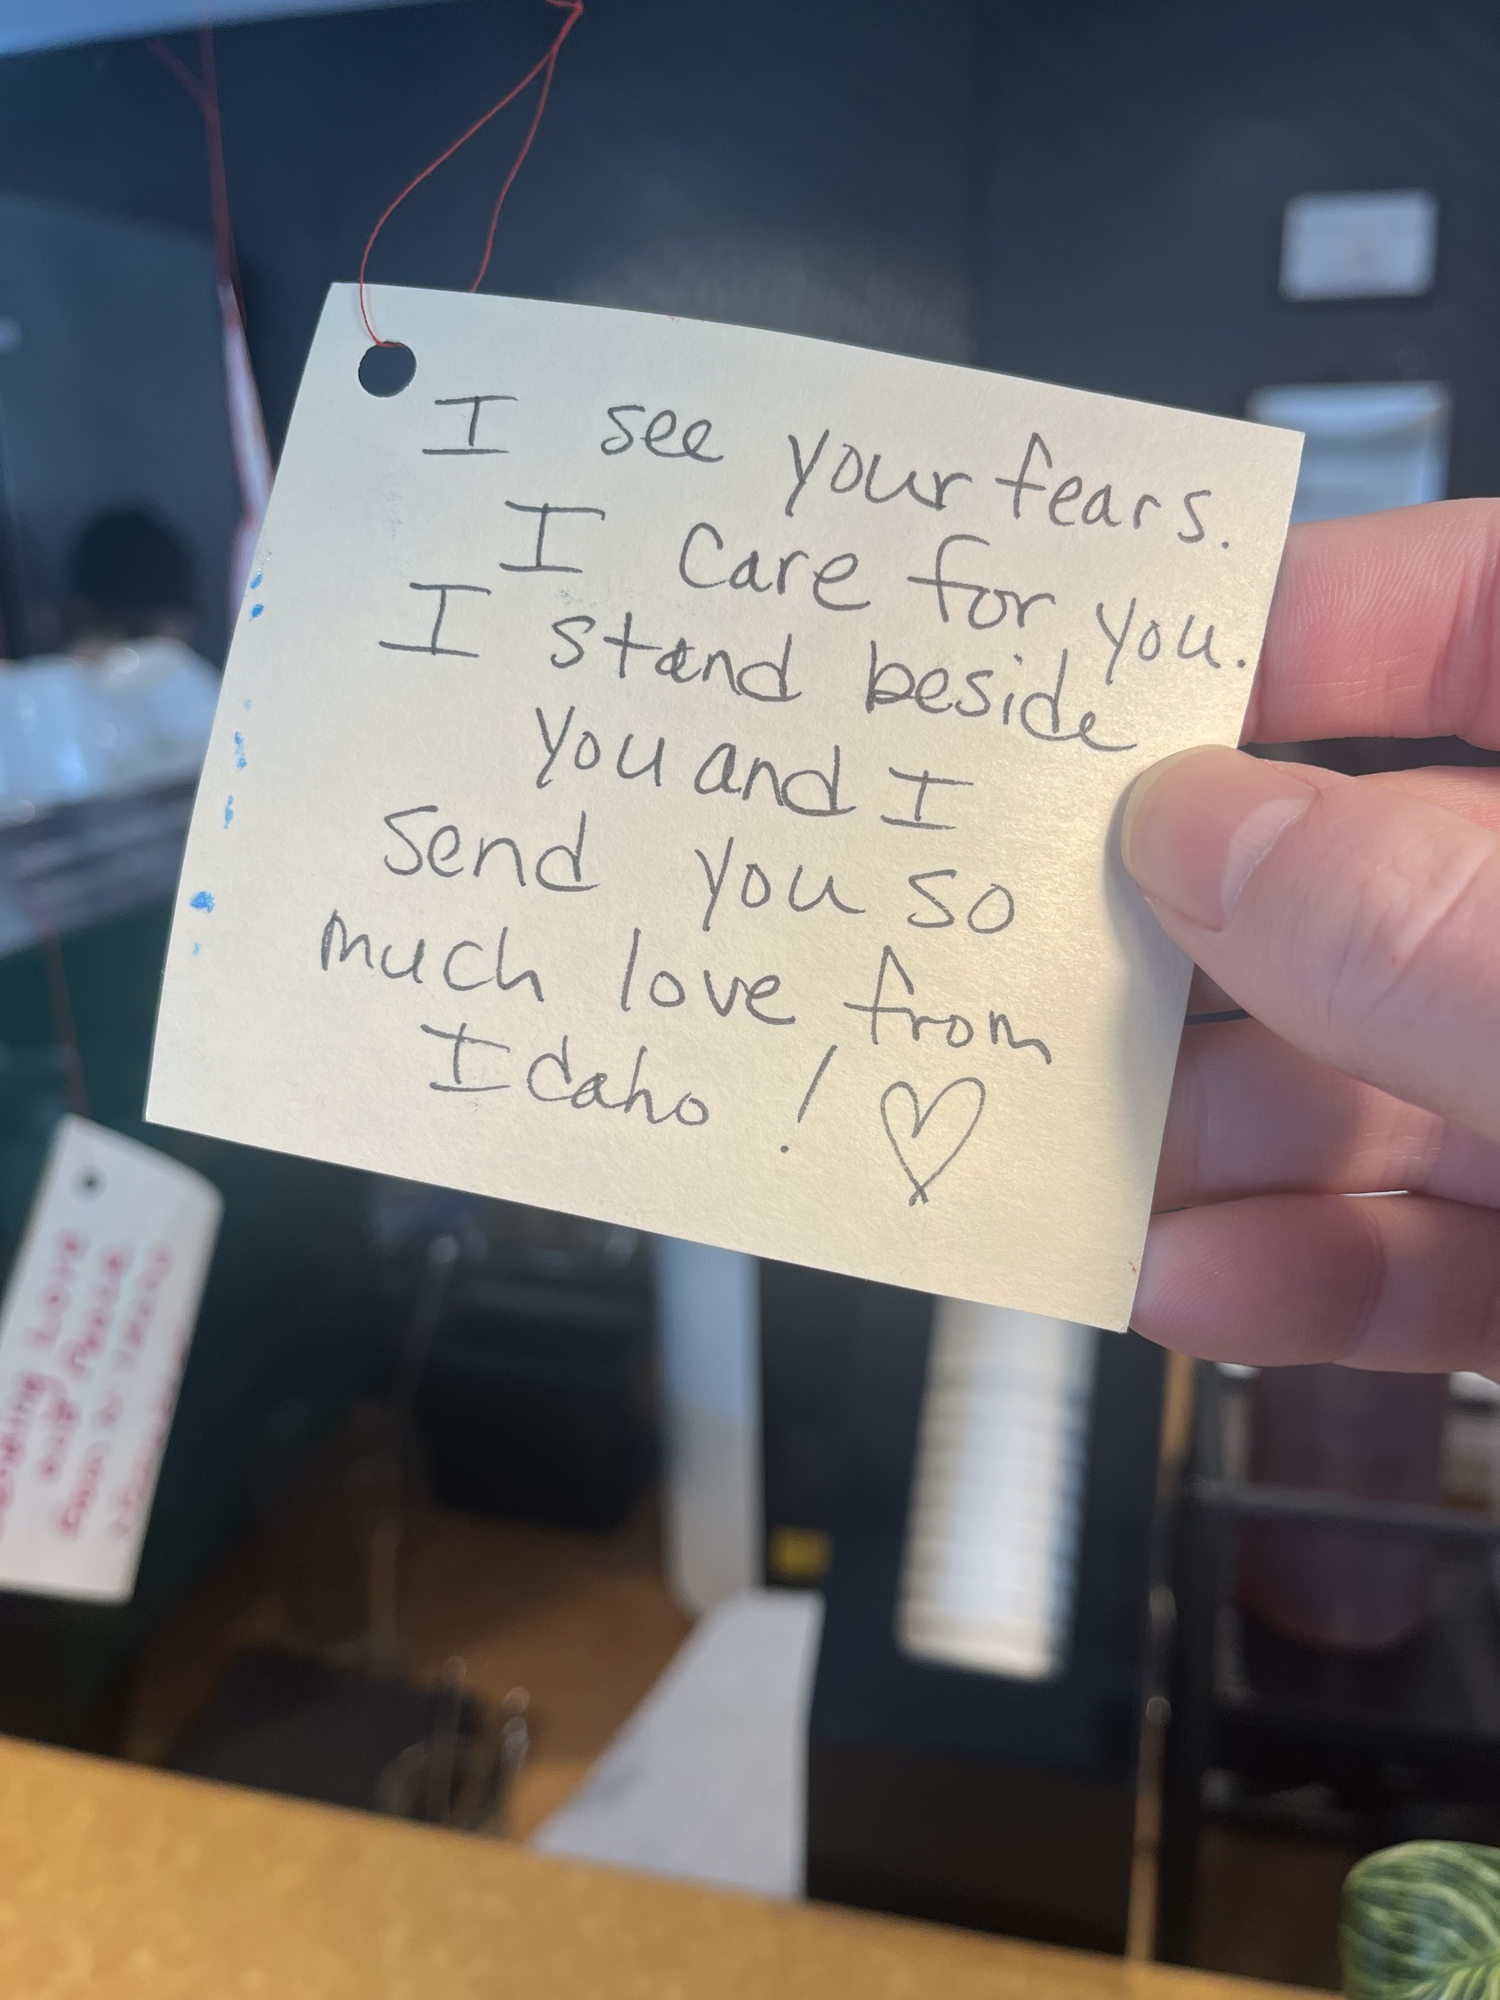 I see your fears.
I care for you.
I stand beside
you and I
send you so
much love from
Idaho! ♡
Love
and